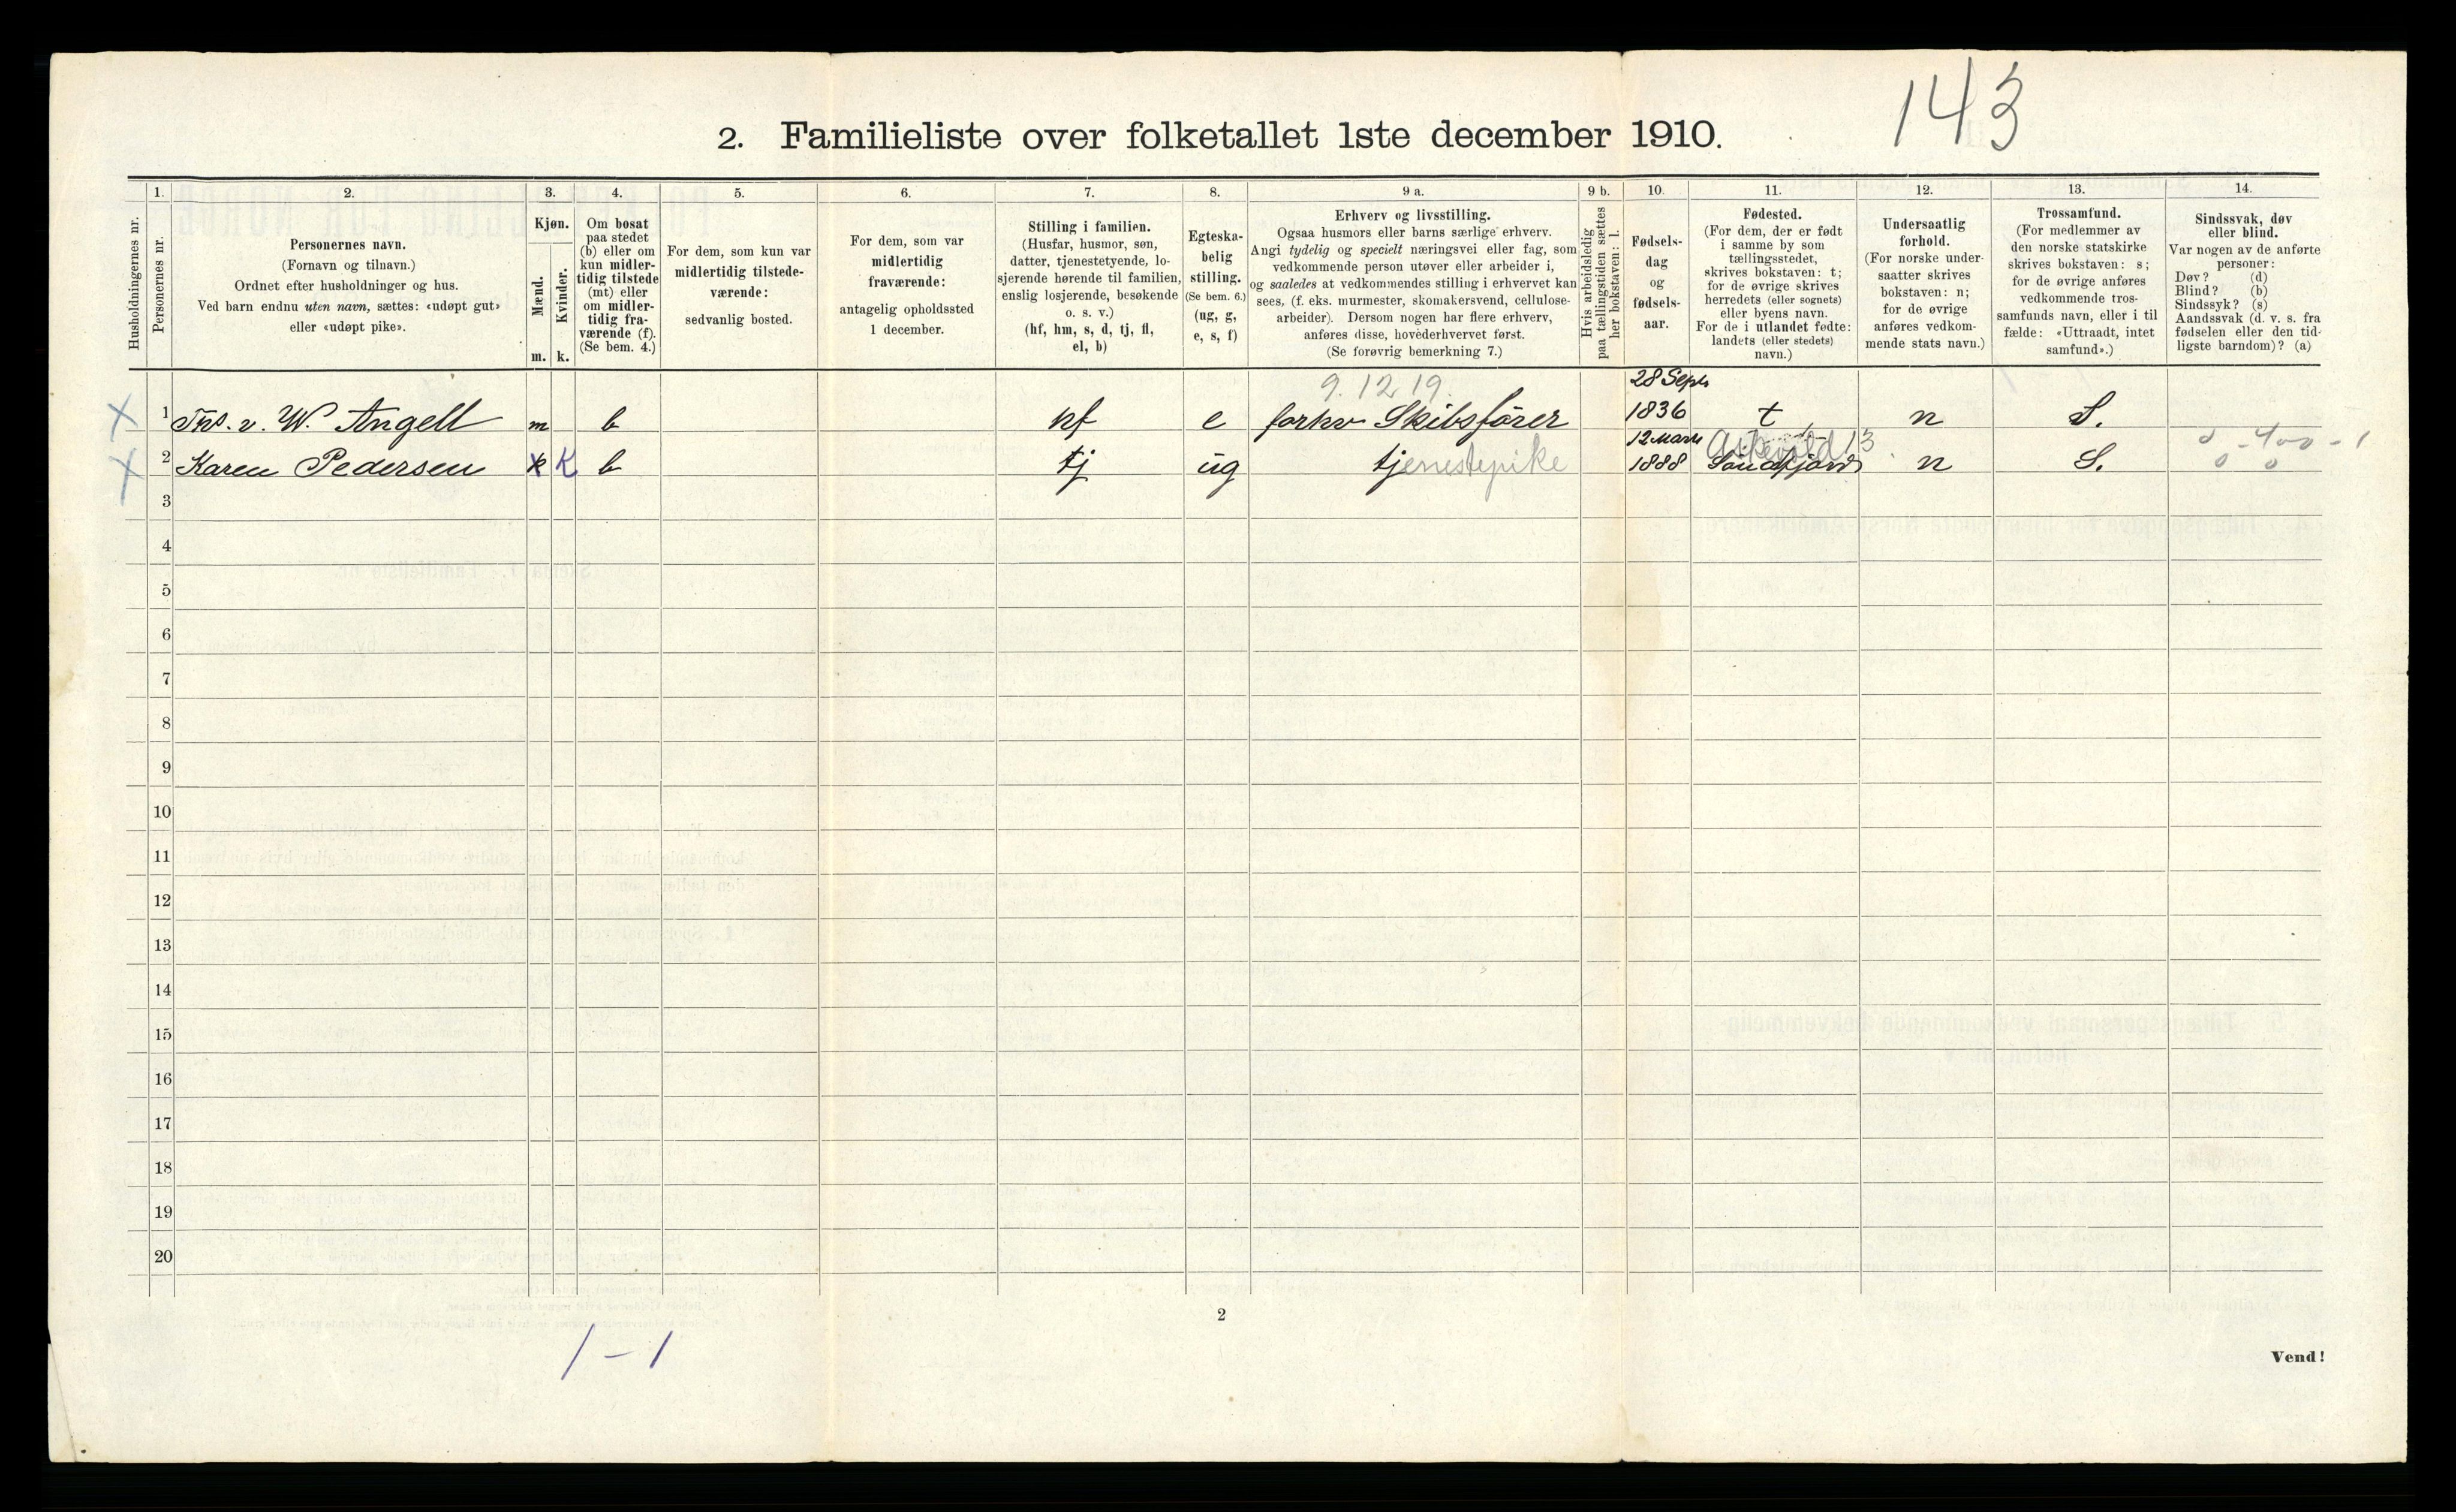 143
2. Familieliste over folketallet 1ste december 1910.
Husholdningernes nr.
1.
Personernes nr.
2.
Personernes navn.
(Fornavn og tilnavn.)
Ordnet efter husholdninger og hus.
Ved barn endnu uten navn, sættes: «udøpt gut»
eller «udøpt pike».
3.
Kjøn.
Mænd.
Kvinder.
m.
k.
4.
Om bosat
paa stedet
(b) eller om
kun midler-
tidig tilstede
(mt) eller
om midler-
tidig fra-
værende (f).
(Se bem. 4.)
5.
For dem, som kun var
midlertidig tilstede-
værende:
sedvanlig bosted.
6.
For dem, som var
midlertidig
fraværende:
antagelig opholdssted
1 december.
7.
Stilling i familien.
(Husfar, husmor, søn,
datter, tjenestetyende, lo-
sjerende hørende til familien,
enslig losjerende, besøkende
o. s. v.)
(hf, hm, s, d, tj, fl,
el, b)
8.
Egteska-
belig
stilling.
(Se bem. 6.)
(ug, g,
e, s, f)
9 a.
Erhverv og livsstilling.
Ogsaa husmors eller barns særlige erhverv.
Angi tydelig og specielt næringsvei eller fag, som
vedkommende person utøver eller arbeider i,
og saaledes at vedkommendes stilling i erhvervet kan
sees, (f. eks. murmester, skomakersvend, cellulose-
arbeider). Dersom nogen har flere erhverv,
anføres disse, hovederhvervet først.
(Se forøvrig bemerkning 7.)
9 b.
Hvis arbeidsledig
paa tællingstiden sættes
her bokstaven: l.
10.
Fødsels-
dag
og
fødsels-
aar.
11.
Fødested.
(For dem, der er født
i samme by som
tællingsstedet,
skrives bokstaven: t;
for de øvrige skrives
herredets (eller sognets)
eller byens navn.
For de i utlandet fødte:
landets (eller stedets)
navn.)
12.
Undersaatlig
forhold.
(For norske under-
saatter skrives
bokstaven: n;
for de øvrige
anføres vedkom-
mende stats navn.)
13.
Trossamfund.
(For medlemmer av
den norske statskirke
skrives bokstaven: s;
for de øvrige anføres
vedkommende tros-
samfunds navn, eller i til
fælde: «Uttraadt, intet
samfund».)
14.
Sindssvak, døv
eller blind.
Var nogen av de anførte
personer:
Døv? (d)
Blind? (b)
Sindssyk? (s)
Aandssvak (d. v. s. fra
fødselen eller den tid-
ligste barndom)? (a)
9.12.19.
28 Sept
X 1 v. W. Angell m b hf e forhv Skibsfører 1836 t n S.
12 Marts Askevold 13 0 - 400 - 1
X 2 Karen Pedersen k K b tj ug tjenestepike 1888 Söndfjord n S. 0 0
3
4
5
6
7
8
9
10
11
12
13
14
15
16
17
18
19
20
2
1 - 1
Vend!